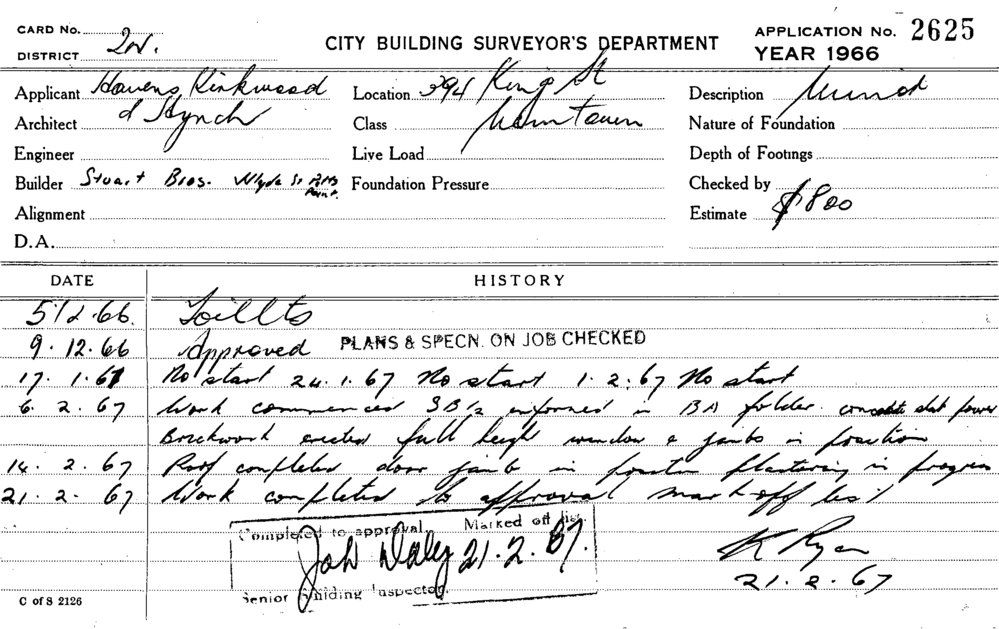 CARD No.
DISTRICT
CITY BUILDING SURVEYOR'S DEPARTMENT
APPLICATION No. 2625
YEAR 1966
Applicant Kirkwood
Location 394 King St
Description
Architect & Hynch
Class
Nature of Foundation
Engineer
Live Load
Depth of Footings
Builder Stuart Bros. Wlyde St Potts Point.
Foundation Pressure
Checked by
Alignment
Estimate $800
D.A.
DATE HISTORY
Approved PLANS & SPECN. ON JOB CHECKED
9.12.66
17.1.67 No start 24.1.67 No start 1.2.67 No start
6.2.67 Work commenced informed in BA folder. concrete slab
Brickwork erected full height window & jambs in position
14.2.67 Roof completed door jamb in position plastering in progress
21.2.67 Work completed to approval mark off list
Completed to approval. Marked off list.
21.2.67.
Senior Building Inspector.
K Ryan
21.2.67
C of S 2126